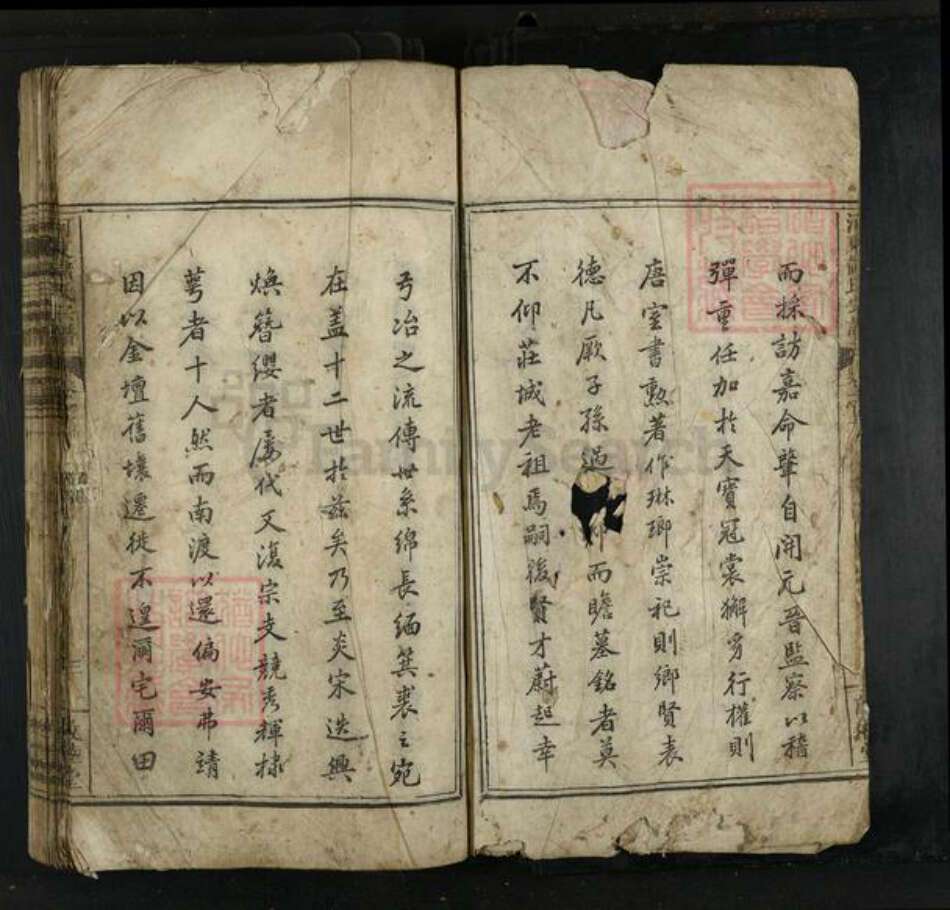 而採訪嘉命肇自開元晉監察以稽
彈重任加於天寶冠裳獬豸行權則
唐室書勲著作琳瑯崇祀則鄉賢表
德凡厥子孫過仰而瞻墓銘者莫
不仰莊城老祖焉嗣後賢才蔚起幸
弓冶之流傳世系綿長緬箕裘之宛
在蓋十二世於兹矣乃至炎宋迭興
煥簪纓者屡代又復宗支競秀輝棣
萼者十人然而南渡以還偏安弗靖
因以金壇舊壤遷徙不遑爾宅爾田
FamilySearch